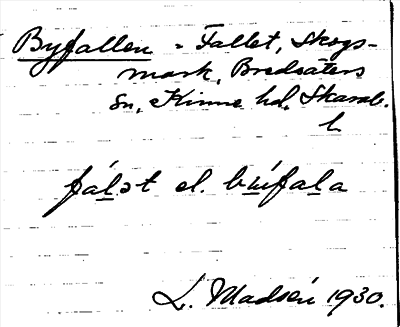 Byfallen = Fallet, Skogs-
mark, Bredsäters
sn, Kinne hd, Skarab.
l.
fálət el. búfala
L. Madsén 1930.